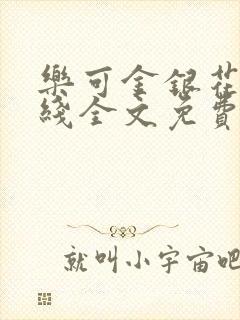 樂可金銀花
綫全文免費
就叫小宇宙吧